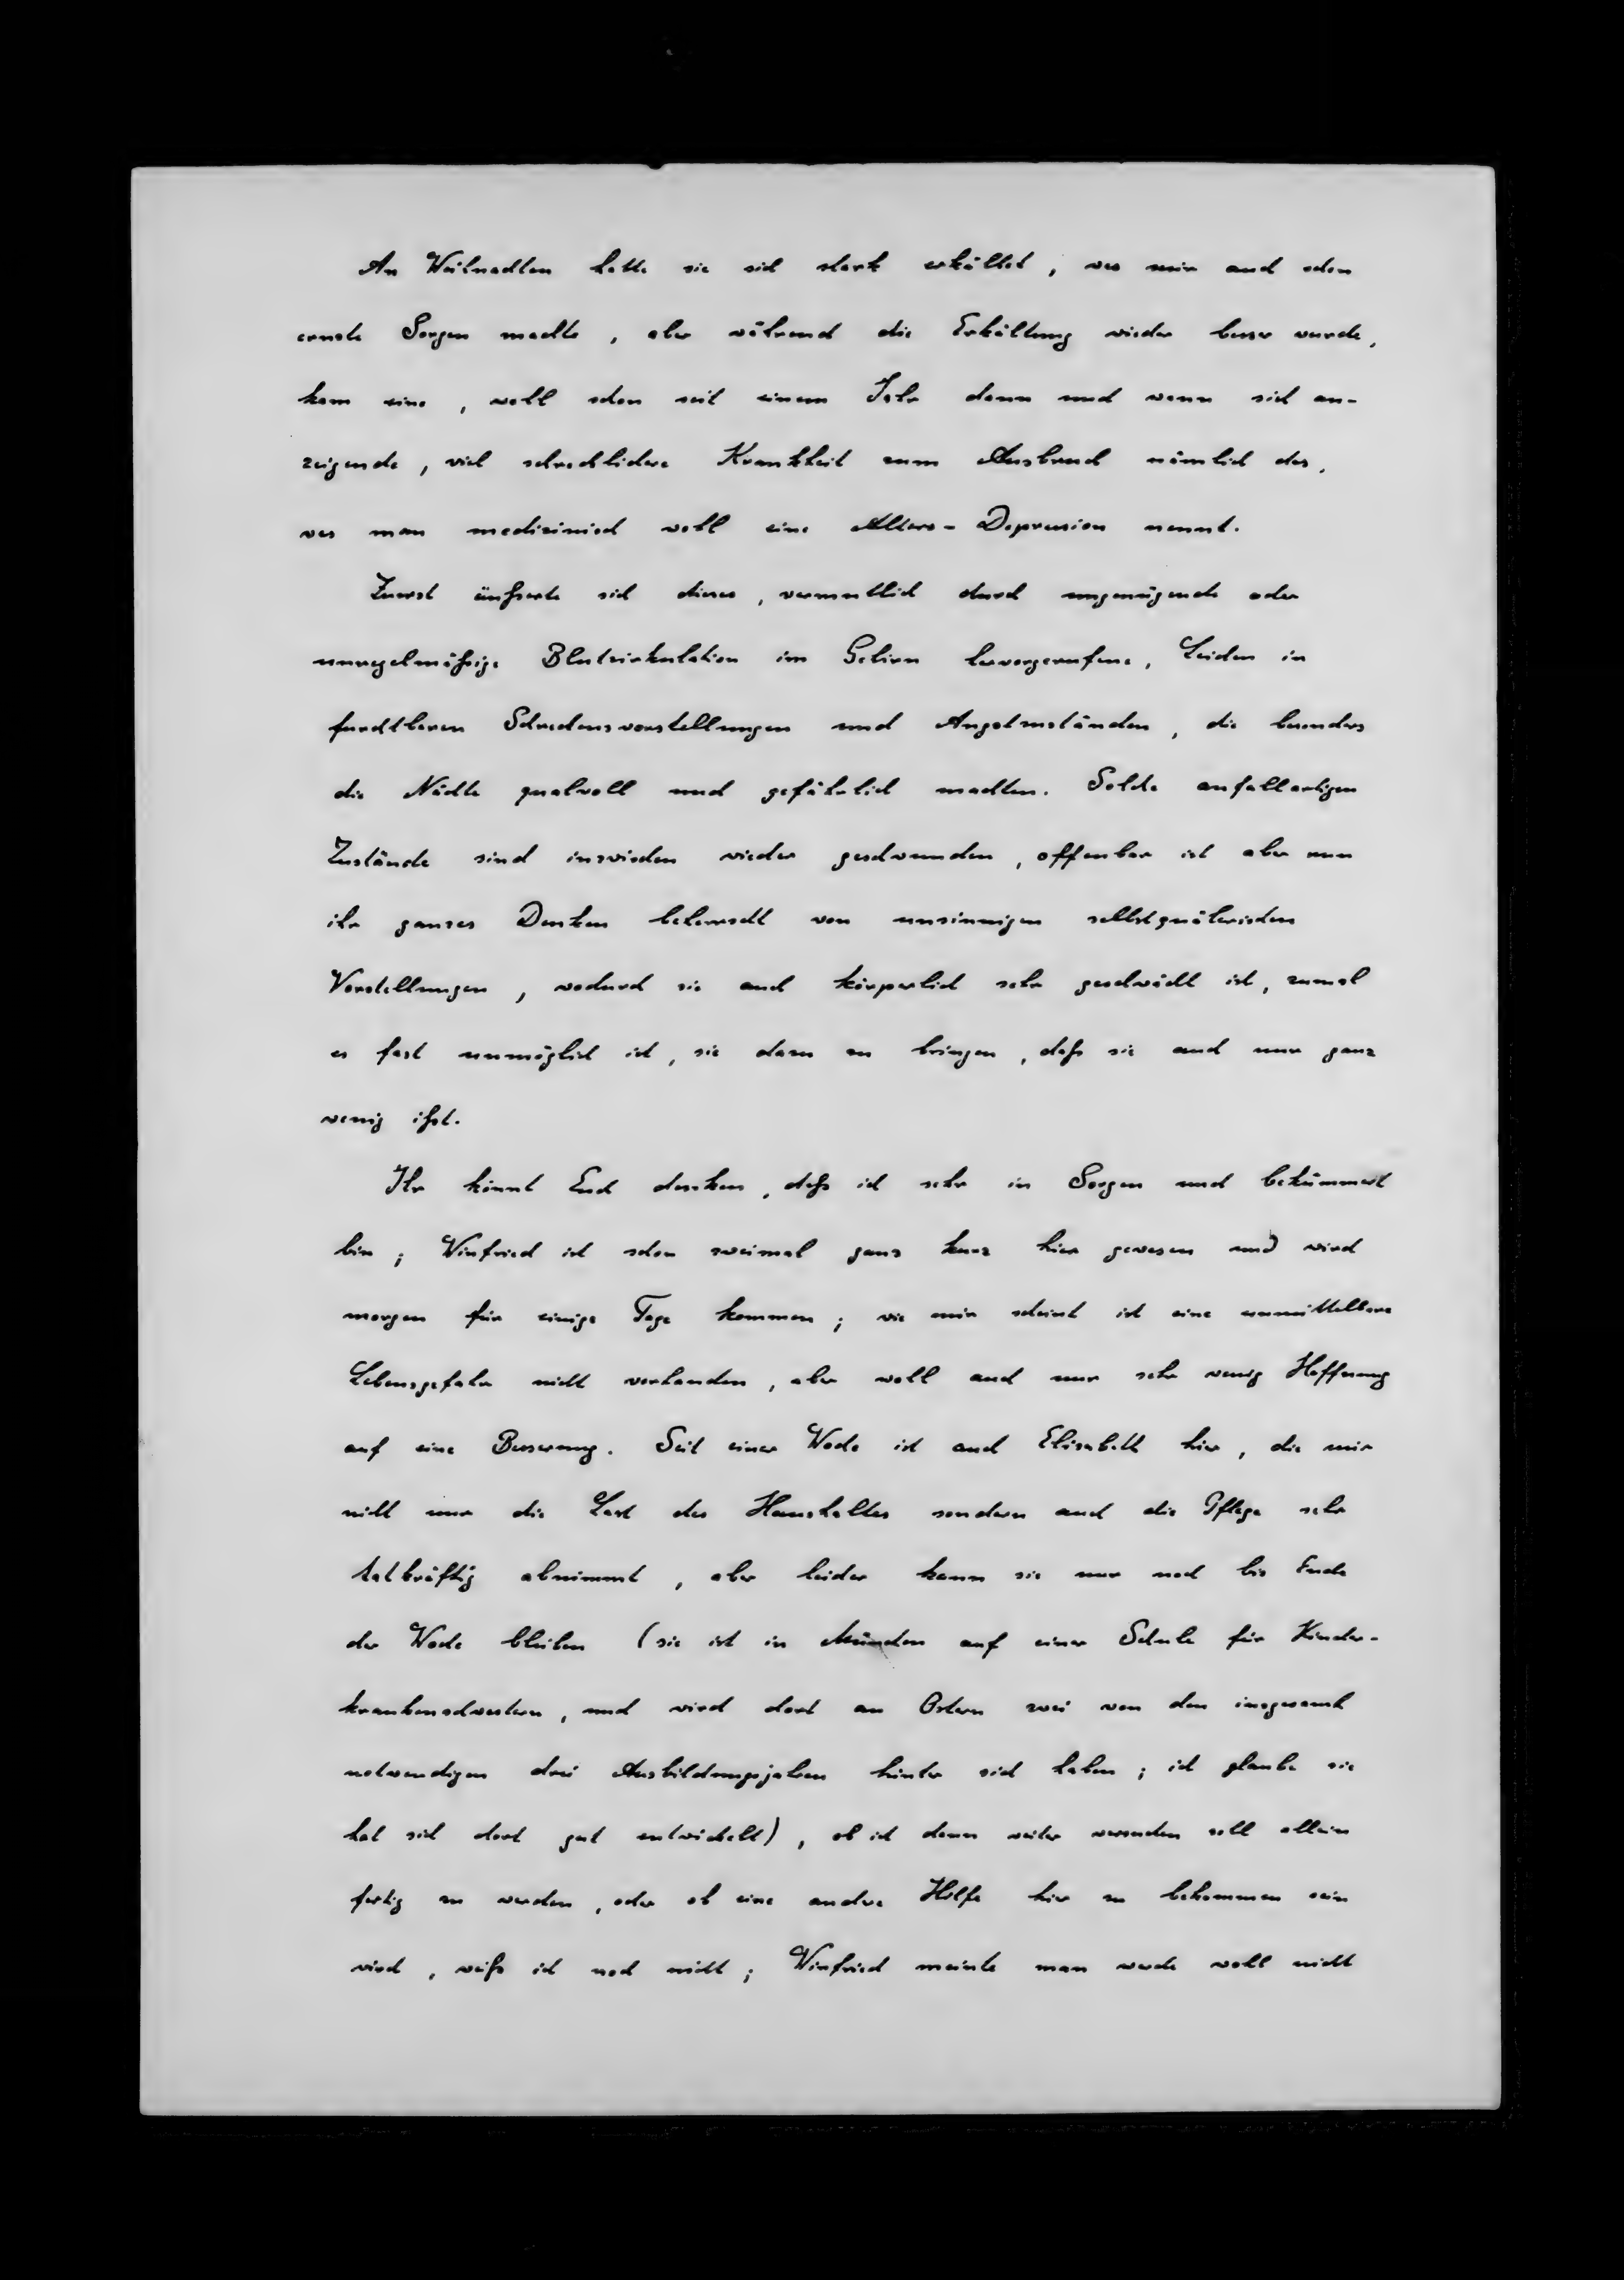 An Weihnachten hatte sie sich stark erkältet, was mir auch schon
ernste Sorgen machte, aber während die Erkältung wieder besser wurde,
kam eine, wohl schon seit einem Jahr dann und wann sich an-
zeigende, viel schrecklichere Krankheit zum Ausbruch nämlich das,
was man medizinisch wohl eine Alters-Depression nennt.
Zuerst äußerte sich dieses, vermutlich durch ungenügende oder
unregelmäßige Blutzirkulation im Gehirn hervorgerufene, Leiden in
furchtbaren Schreckensvorstellungen und Angstzuständen, die besonders
die Nächte qualvoll und gefährlich machten. Solche anfallartigen
Zustände sind inzwischen wieder geschwunden, offenbar ist aber nun
ihr ganzes Denken beherrscht von unsinnigen selbstquälerischen
Vorstellungen, wodurch sie auch körperlich sehr geschwächt ist, zumal
es fast unmöglich ist, sie dazu zu bringen, daß sie auch nur ganz
wenig ißt.
Ihr könnt Euch denken, daß ich sehr in Sorgen und bekümmert
bin; Winfried ist schon zweimal ganz kurz hier gewesen und wird
morgen für einige Tage kommen; wie mir scheint ist eine unmittelbare
Lebensgefahr nicht vorhanden, aber wohl auch nur sehr wenig Hoffnung
auf eine Besserung. Seit einer Woche ist auch Elisabeth hier, die mir
nicht nur die Last des Haushaltes sondern auch die Pflege sehr
tatkräftig abnimmt, aber leider kann sie nur noch bis Ende
der Woche bleiben (sie ist in München auf einer Schule für Kinder-
krankenschwestern, und wird dort an Ostern zwei von den insgesamt
notwendigen drei Ausbildungsjahren hinter sich haben; ich glaube sie
hat sich dort gut entwickelt), ob ich dann weiter versuchen soll allein
fertig zu werden, oder ob eine andre Hilfe hier zu bekommen sein
wird, weiß ich noch nicht; Winfried meinte man werde wohl nicht